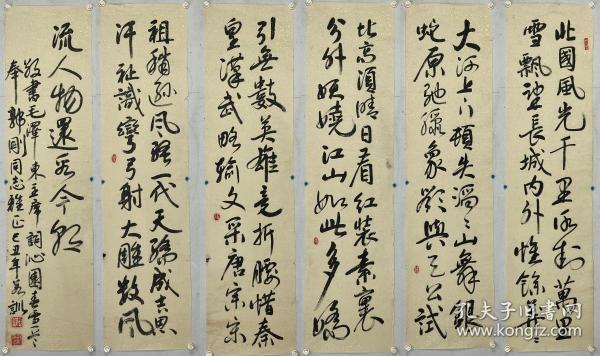 北國風光千里冰封萬里
雪飄望長城内外惟餘莽
大河上下頓失滔滔山舞銀
蛇原馳蠟象欲與天公試
比高須晴日看紅裝素裹
分外妖嬈江山如此多嬌
引無數英雄竞折腰惜秦
皇漢武略輸文采唐宗宋
祖稍遜风骚一代天骄成吉思
汗祗識彎弓射大雕数风
流人物還看今朝
敬書毛澤東主席詞沁園春雪一首
奉郭刚同志雅正己丑年
孔夫子旧书网
www.kongfz.com